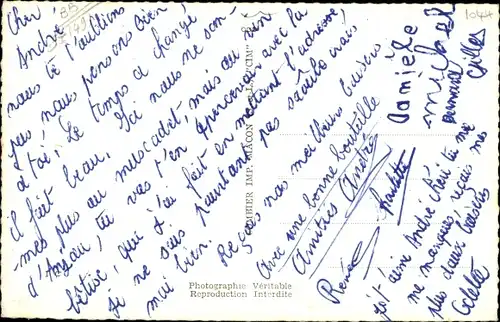 Cher André
nous t'oublions
pas, nous pensons bien
à toi, Le temps a changé,
il fait beau, Ici nous ne som-
mes plus au muscadet, mais au vin
d'Anjou, tu vas t'en apercevoir avec la
bêtise, que j'ai fait en mettant l'adresse
je ne suis pourtant pas saoûle crois
moi bien.
Reçois nos meilleurs baisers
avec une bonne bouteille
Amitiés André
René
Danièle
michel
Bernard
Gilles
p'tit aimé André chéri tu me
me manques, reçois mes
plus doux baisers
Colette
COMBIER IMP. MACON "CIM"
Photographie Véritable
Reproduction Interdite
1044